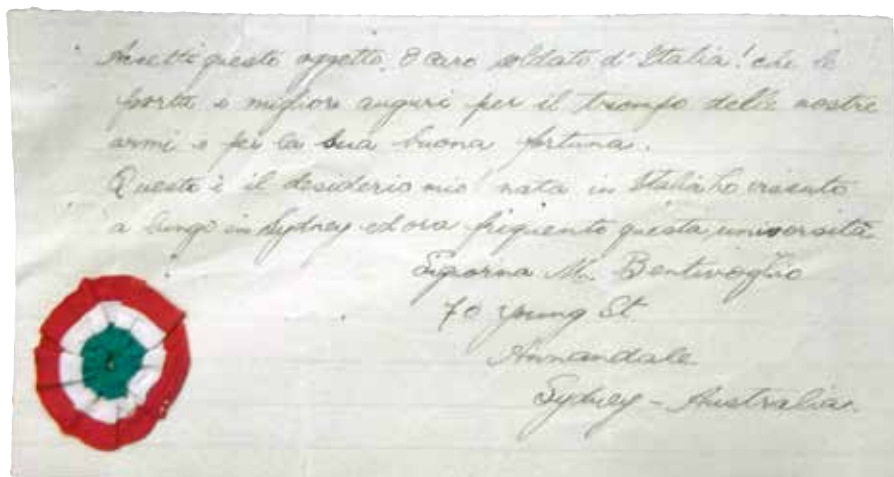 Accetti questo oggetto, O caro soldato d'Italia! che le
porta i migliori auguri per il trionfo delle nostre
armi e per la sua buona fortuna.
Questo è il desiderio mio nata in Italia ho vissuto
a lungo in Sydney ed ora frequento questa università
Signorina M. Bentivoglio
70 Young St
Annandale
Sydney - Australia.